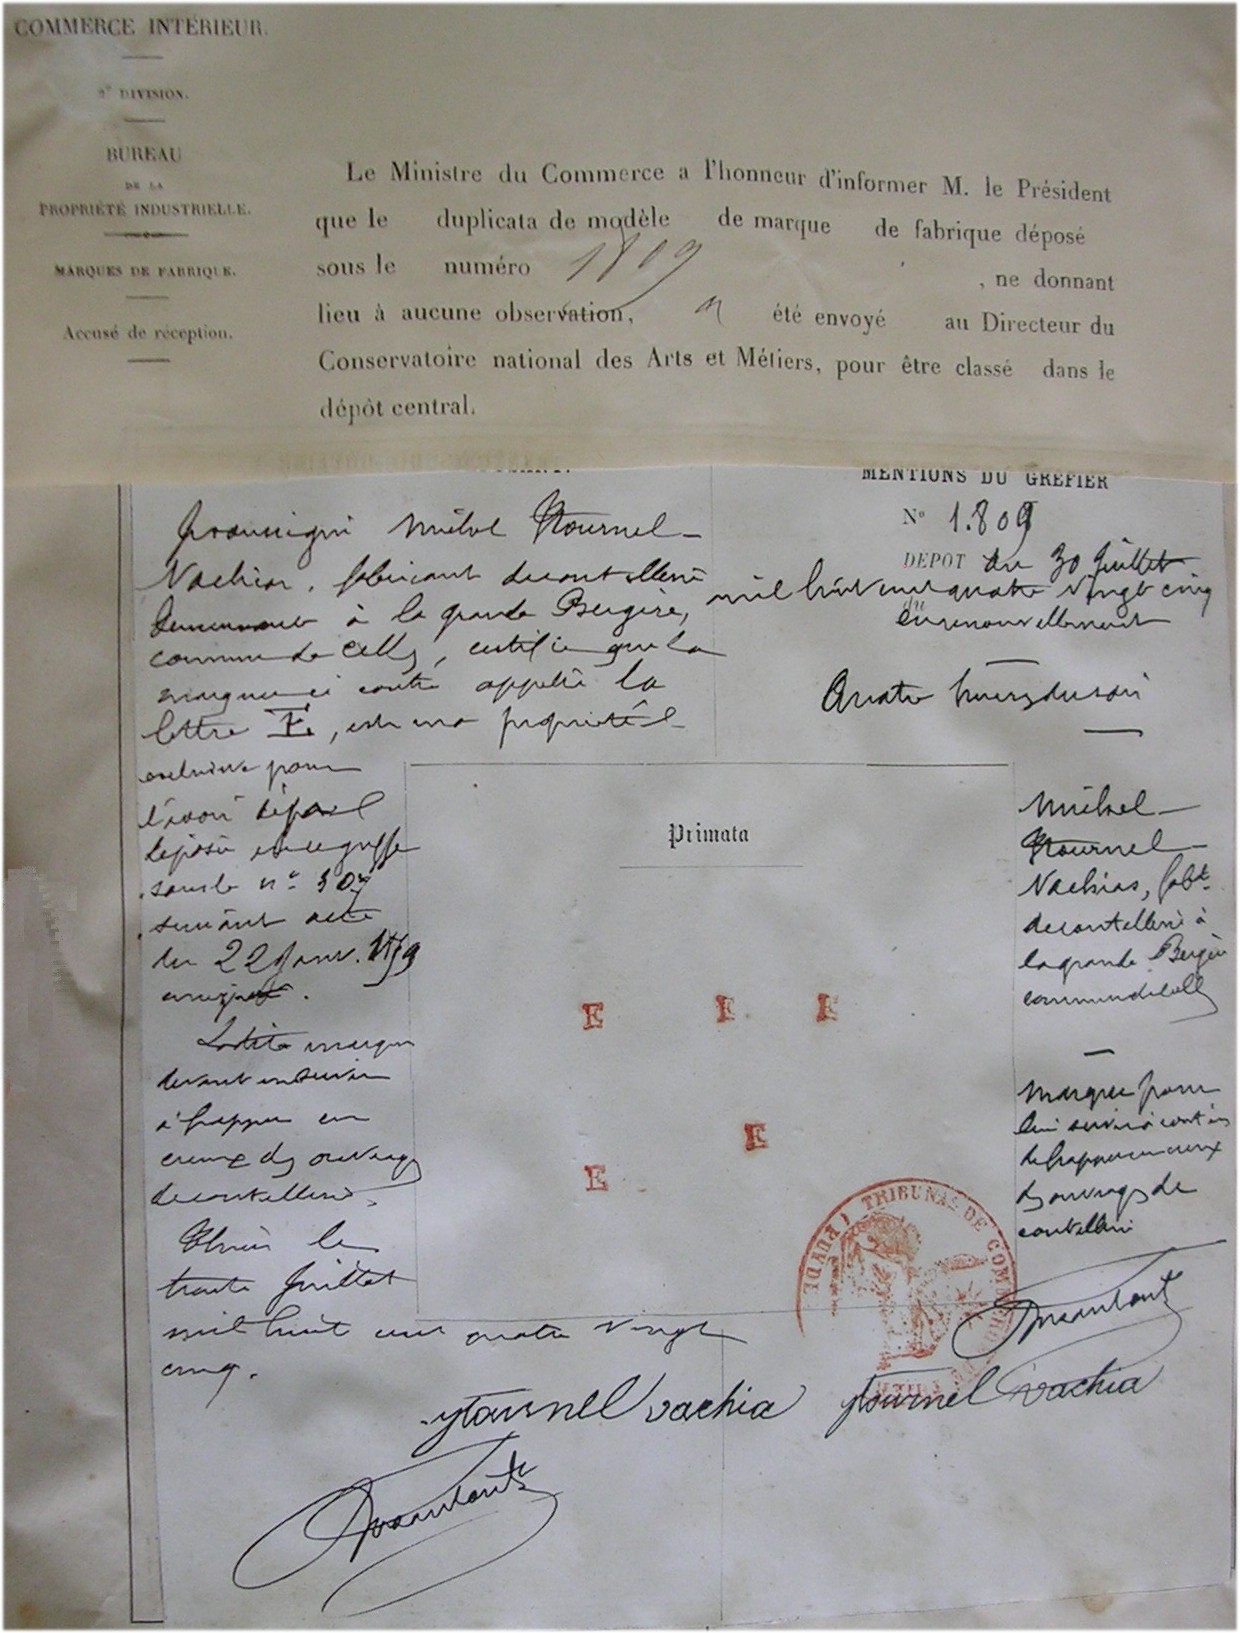 COMMERCE INTÉRIEUR.
2e DIVISION.
BUREAU
DE LA
PROPRIÉTÉ INDUSTRIELLE.
MARQUES DE FABRIQUE.
Accusé de réception.
Le Ministre du Commerce a l'honneur d'informer M. le Président
que le duplicata de modèle de marque de fabrique déposé
sous le numéro 1809, ne donnant
lieu à aucune observation, a été envoyé au Directeur du
Conservatoire national des Arts et Métiers, pour être classé dans le
dépôt central.
Je soussigné Michel Ytournel
Vachias, fabricant de coutellerie
demeurant à la grande Bergère,
commune de Celles, certifie que la
marque ci contre appelée la
lettre E, est ma propriété
exclusive pour
l'avoir
déposée au greffe
sous le n°
suivant acte
du 22 Janv.
enregistré.
Ladite marque
devant me servir
à frapper en
creux des ouvrages
de coutellerie.
Thiers le
trente Juillet
mil huit cent quatre vingt
cinq.
MENTIONS DU GREFIER
N° 1.809
DÉPOT du 30 Juillet
mil huit cent quatre vingt cinq
du
en renouvellement
Quatre heures du soir
Michel
Ytournel
Vachias, fabt
de coutellerie à
la grande Bergère
commune de Celles
Marque pour
lui servir à continuer
de frapper en creux
des ouvrages de
coutellerie
Primata
E E E
E
E
TRIBUNAL DE COMMERCE
(PUY DE
ytournel vachia ytournel vachia